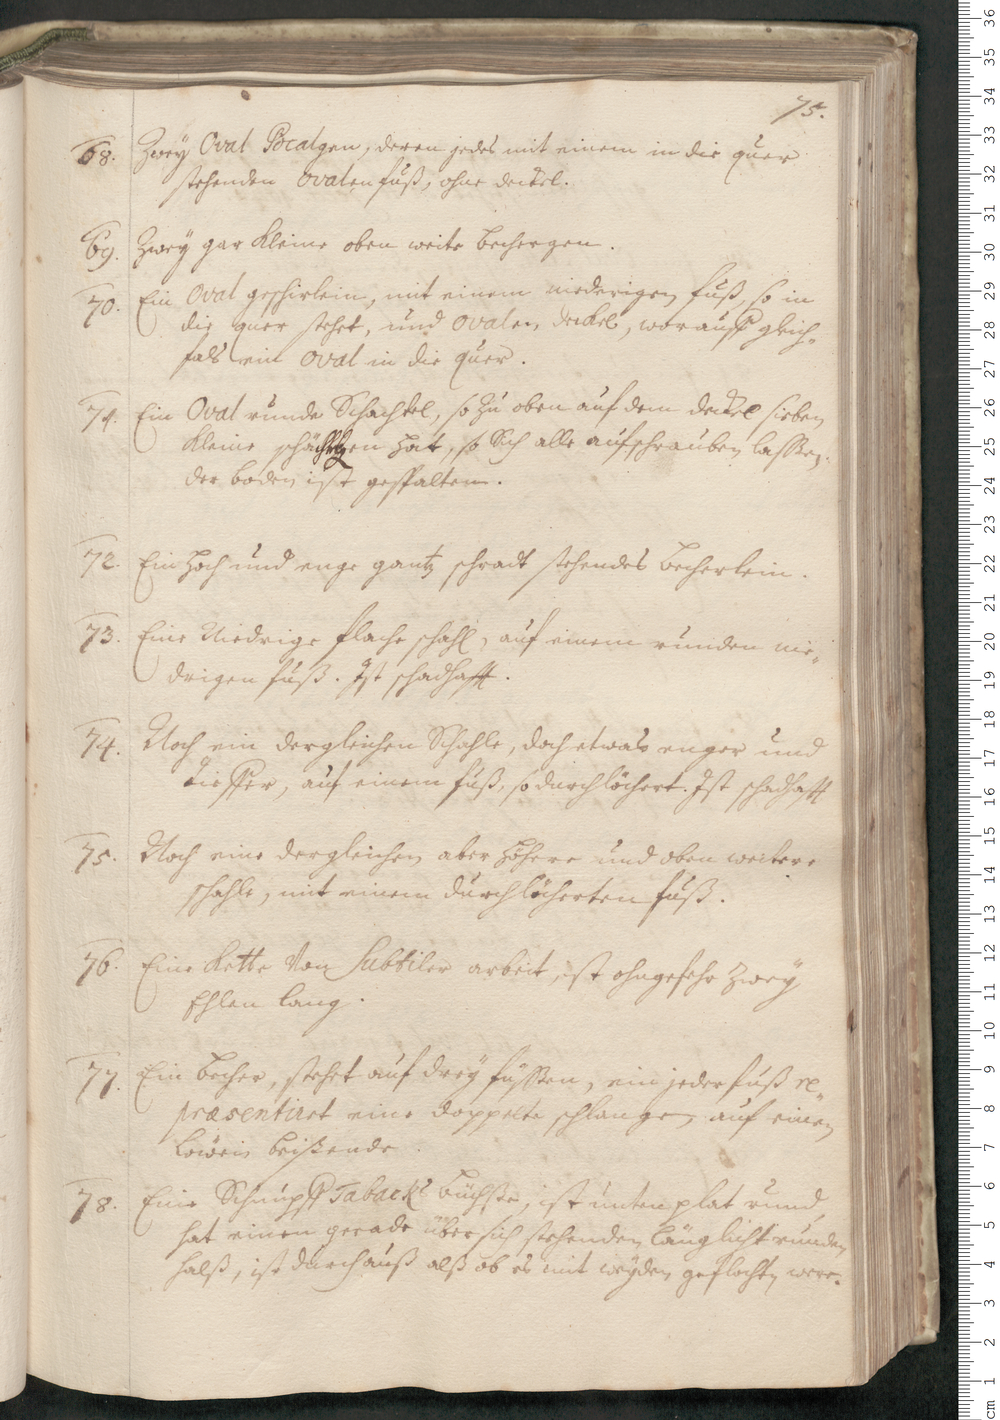 75.
68. Zwey Oval Pocalgen, deren jedes mit einem in die quer
stehenden ovalen fuß, ohne deckel.
69. Zwey gar kleine oben weite bechergen.
70. Ein Oval geschirlein, mit einem niederigen fuß, so in
die quer stehet, und ovalen deckel, worauff gleich-
fals ein oval in die quer.
71. Ein Oval runde Schachtel, so zu oben auf dem deckel sieben
kleine schächtgen hat, so sich alle aufschrauben lassen.
der boden ist gespalten.
72. Ein hoch und enge gantz schradt stehendes becherlein.
73. Eine Niedrige flache schahl, auf einem runden nie-
drigen fuß. Ist schadhafft.
74. Noch ein dergleichen Schahle, doch etwas enger und
tieffer, auf einem fuß, so durchlöchert. Ist schadhafft
75. Noch eine dergleichen aber höhere und oben weitere
schahle, mit einem durchlöcherten fuß.
76. Eine Kette von subtiler arbeit, ist ohngefehr zwey
Ehlen lang.
77. Ein becher, stehet auf drey füssen, ein jeder fuß re-
præsentiret eine doppelte schlangen auf einen
löwen beißende.
78. Eine Schnupff Tabacks büchse, ist unten plat rund,
hat einen gerade über sich stehenden länglicht runden
halß, ist durchauß alß ob es mit weyden geflochten were.
36
35
34
33
32
31
30
29
28
27
26
25
24
23
22
21
20
19
18
17
16
15
14
13
12
11
10
9
8
7
6
5
4
3
2
1
cm